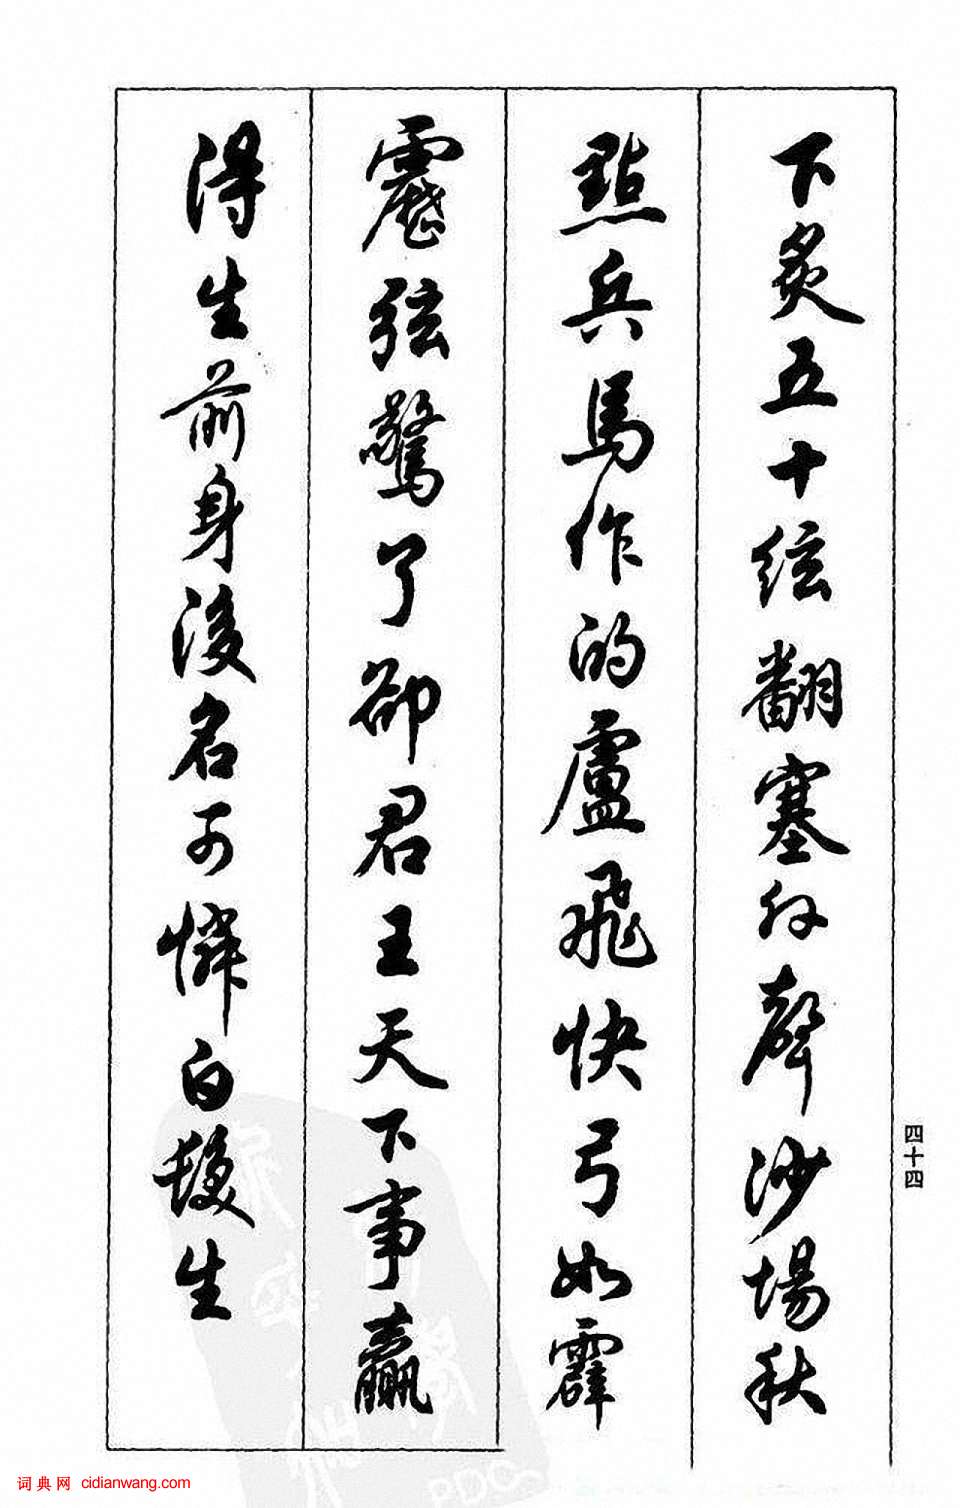 下炙五十絃翻塞外聲沙場秋
點兵馬作的盧飛快弓如霹
靂弦驚了卻君王天下事贏
得生前身後名可憐白髮生
四十四
词典网 cidianwang.com
PDG